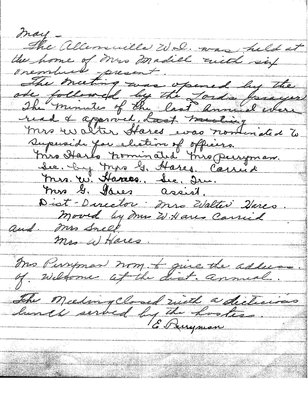 May -
The Allensville W.I. was held at
the home of Mrs Madill with six
members present.
The Meeting was opened by the
ode followed by the Lords prayer
The minutes of the last Annual were
read & approved, Last Meeting
Mrs Walter Hares was nominated to
Supeside for election of officers.
Mrs Hares nominated Mrs Perryman.
Sec. by Mrs G. Hares, Carried
Mrs. W. Hares, Sec. Tre.
Mrs G. Hares assist.
Dist - Director - Mrs Walter Heres.
Moved by Mrs W Hares Carried
and Mrs Snell
Mrs W Hares.
Mrs Perryman nom. to give the address
of Welcome at the Dist. Annual.
The Meeting Closed with a delicious
lunch served by the hostess.
E. Perryman